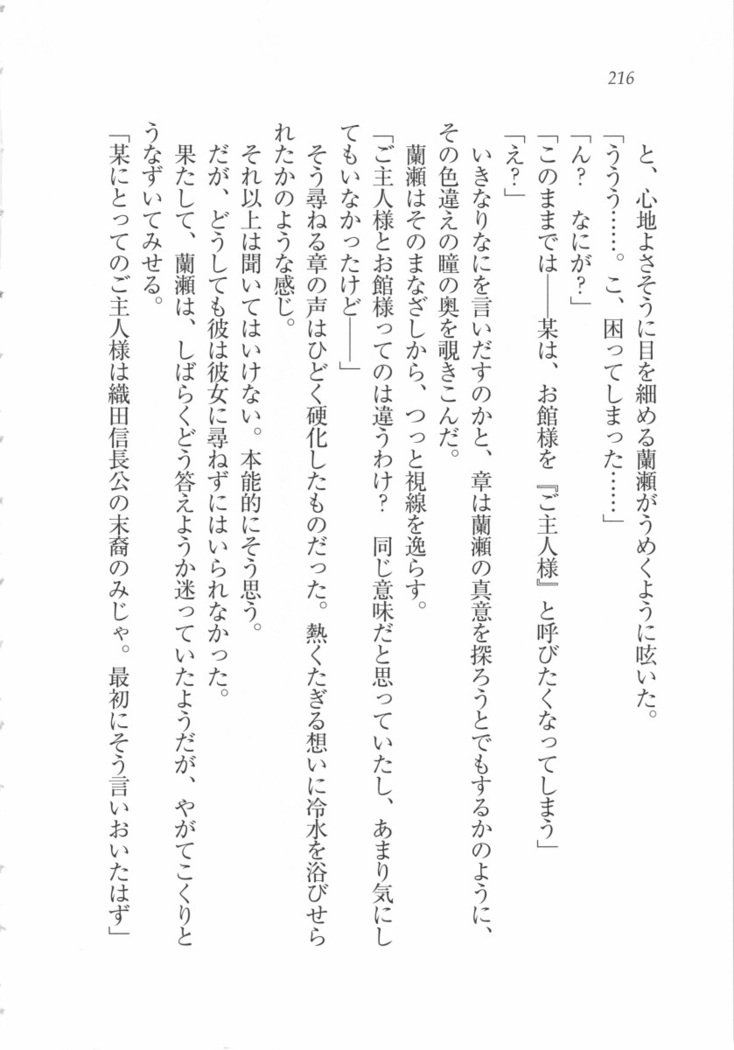 216
と、心地よさそうに目を細める蘭瀬がうめくように呟いた。
「ううう……。こ、困ってしまった……」
「ん？　なにが？」
「このままでは――某は、お館様を『ご主人様』と呼びたくなってしまう」
「え？」
いきなりなにを言いだすのかと、章は蘭瀬の真意を探ろうとでもするかのように、
その色違えの瞳の奥を覗きこんだ。
蘭瀬はそのまなざしから、つっと視線を逸らす。
「ご主人様とお館様ってのは違うわけ？　同じ意味だと思っていたし、あまり気にし
てもいなかったけど――」
そう尋ねる章の声はひどく硬化したものだった。熱くたぎる想いに冷水を浴びせら
れたかのような感じ。
それ以上は聞いてはいけない。本能的にそう思う。
だが、どうしても彼は彼女に尋ねずにはいられなかった。
果たして、蘭瀬は、しばらくどう答えようか迷っていたようだが、やがてこくりと
うなずいてみせる。
「某にとってのご主人様は織田信長公の末裔のみじゃ。最初にそう言いおいたはず」